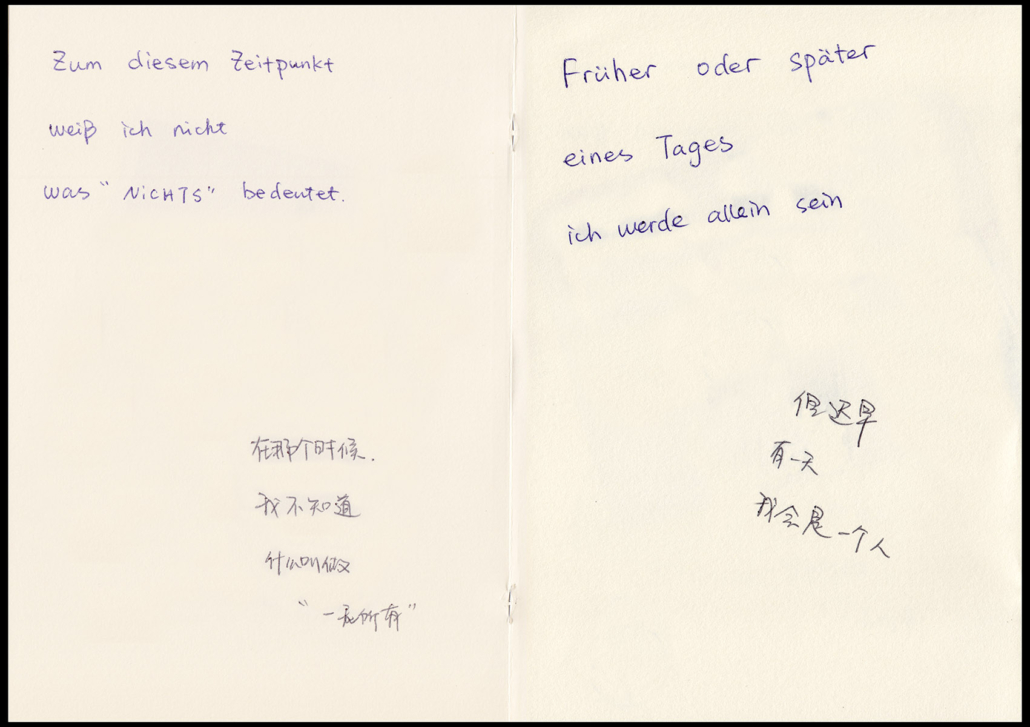 Zum diesem Zeitpunkt
weiß ich nicht
was "NiCHTS" bedeutet.
在那个时候.
我不知道
什么叫做
"一无所有"
Früher oder später
eines Tages
ich werde allein sein
但迟早
有一天
我会是一个人